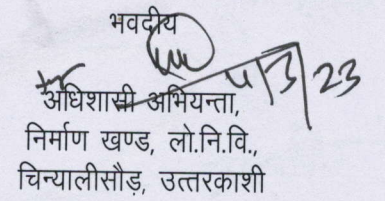 भवदीय
4/3/23
अधिशासी अभियन्ता,
निर्माण खण्ड, लो.नि.वि.,
चिन्यालीसौड़, उत्तरकाशी